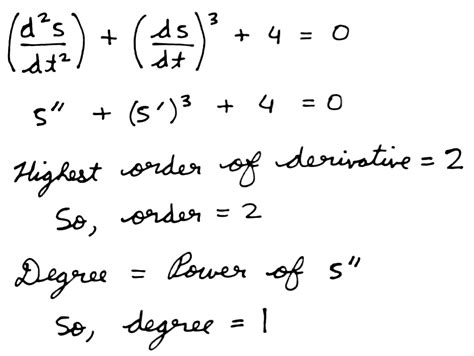 (d²s/dt²) + (ds/dt)³ + 4 = 0
s″ + (s′)³ + 4 = 0
Highest order of derivative = 2
So, order = 2
Degree = Power of s″
So, degree = 1